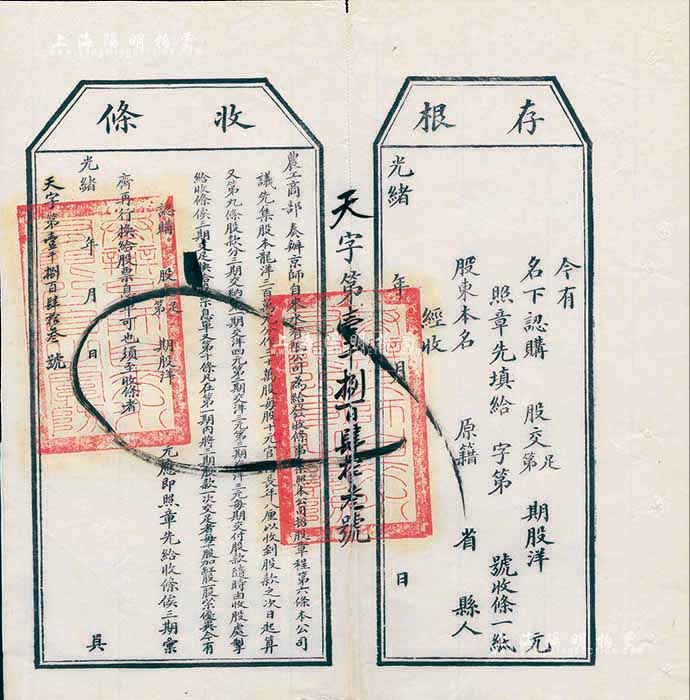 存根
今有
名下認購 股交足第 期股洋 元
照章先填給 字第 號收條一紙
股東本名 原籍 省 縣人
經收
光緒 年 月 日
天字第壹千捌百肆拾叁號
收條
農工商部奏辦京師自來水有限公司為給發收條事照本公司招股章程第六條本公司
議先集股本龍洋三百萬元分作三十萬股每股十元官利長年八厘以收到股款之次日起算
又第九條股款分三期交納第一期交洋四元第二期交洋三元第三期交洋三元每期交付股款隨時由收股處掣
給收條俟三期交足換給股票息單又第十條凡在第一期內將三期股款一次交足者每十股加紅股一股以示優異今有
認購 股交足第 期股洋 元應即照章先給收條俟三期彙
齊再行換給股票息單可也須至收條者
光緒 年 月 日 具
天字第壹千捌百肆拾叁號
上海陽明拍賣
上海陽明拍賣